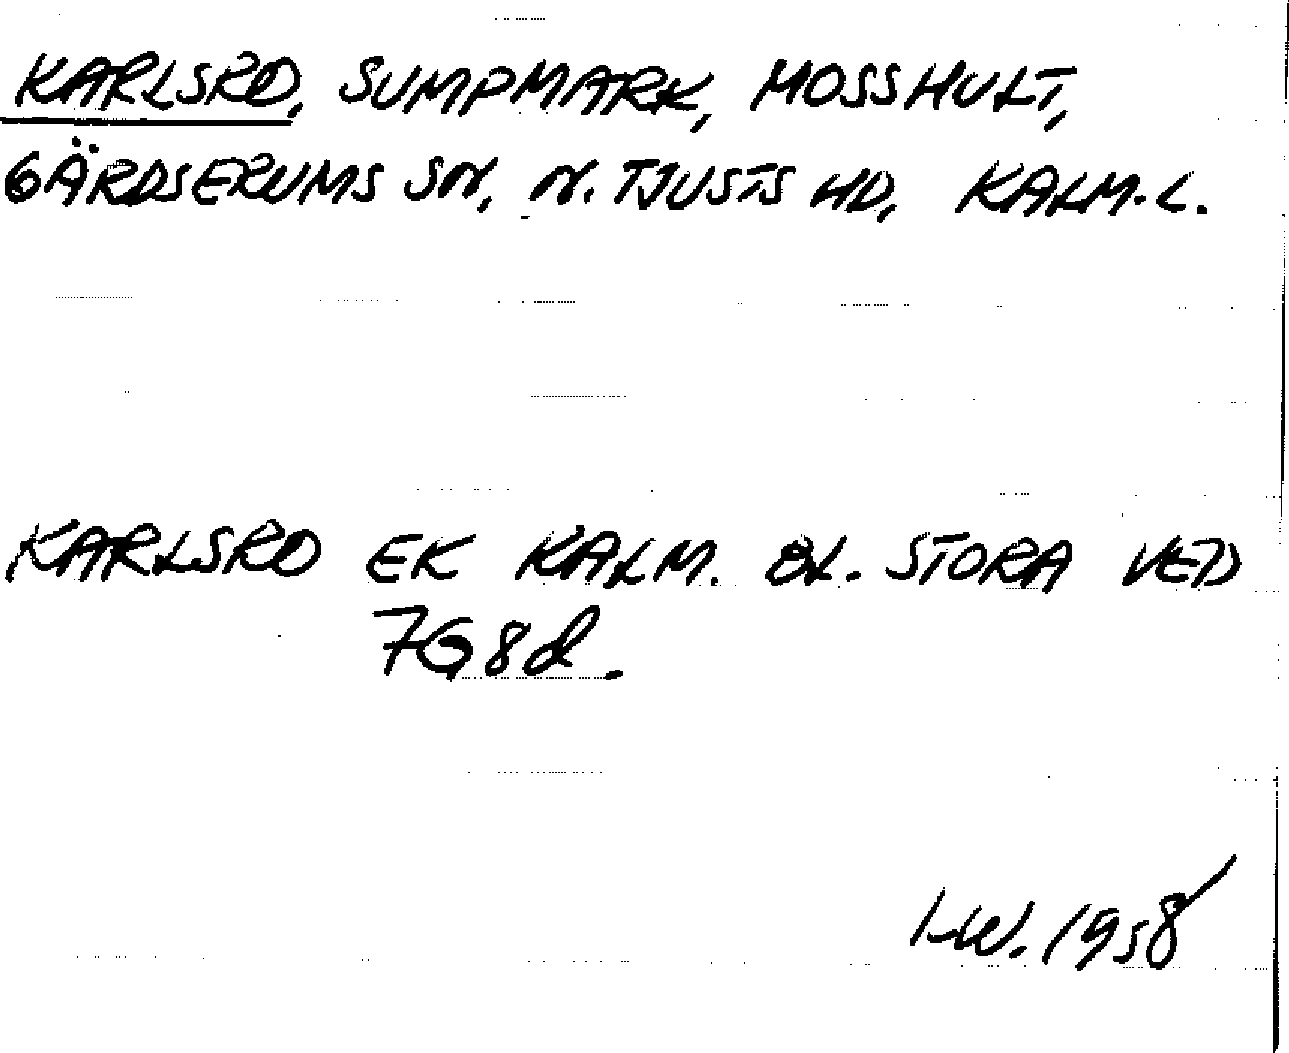 KARLSRO, SUMPMARK, MOSSHULT,
GÄRDSERUMS SN, N. TJUSTS HD, KALM. L.
KARLSRO EK KALM. BL. STORA VED
7G8d.
1958